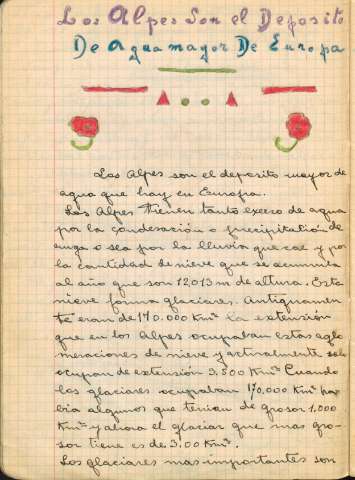 Los Alpes Son el Deposito
De Agua mayor De Europa
Los Alpes son el deposito mayor de
agua que hay en Europa.
Los Alpes tienen tanto exceso de agua
por la condesación o precipitatión de
o sea por la lluvia que cae y por
la cantidad de nieve que se acumula
al año que son 12 o 13 m de altura. Esta
nieve forma glaciares. Antiguamen-
te eran de 170.000 Km² la extensión
que en los Alpes ocupaban estas aglo
meraciones de nieve y actualmente solo
ocupan de extensión 3.800 Km². Cuando
los glaciares ocupaban 170,000 Km² ha
bia algunos que tenian de grosor 1.000
Km² y ahora el glaciar que mas gro-
sor tiene es de 3.00 Km².
Los glaciares mas importantes son